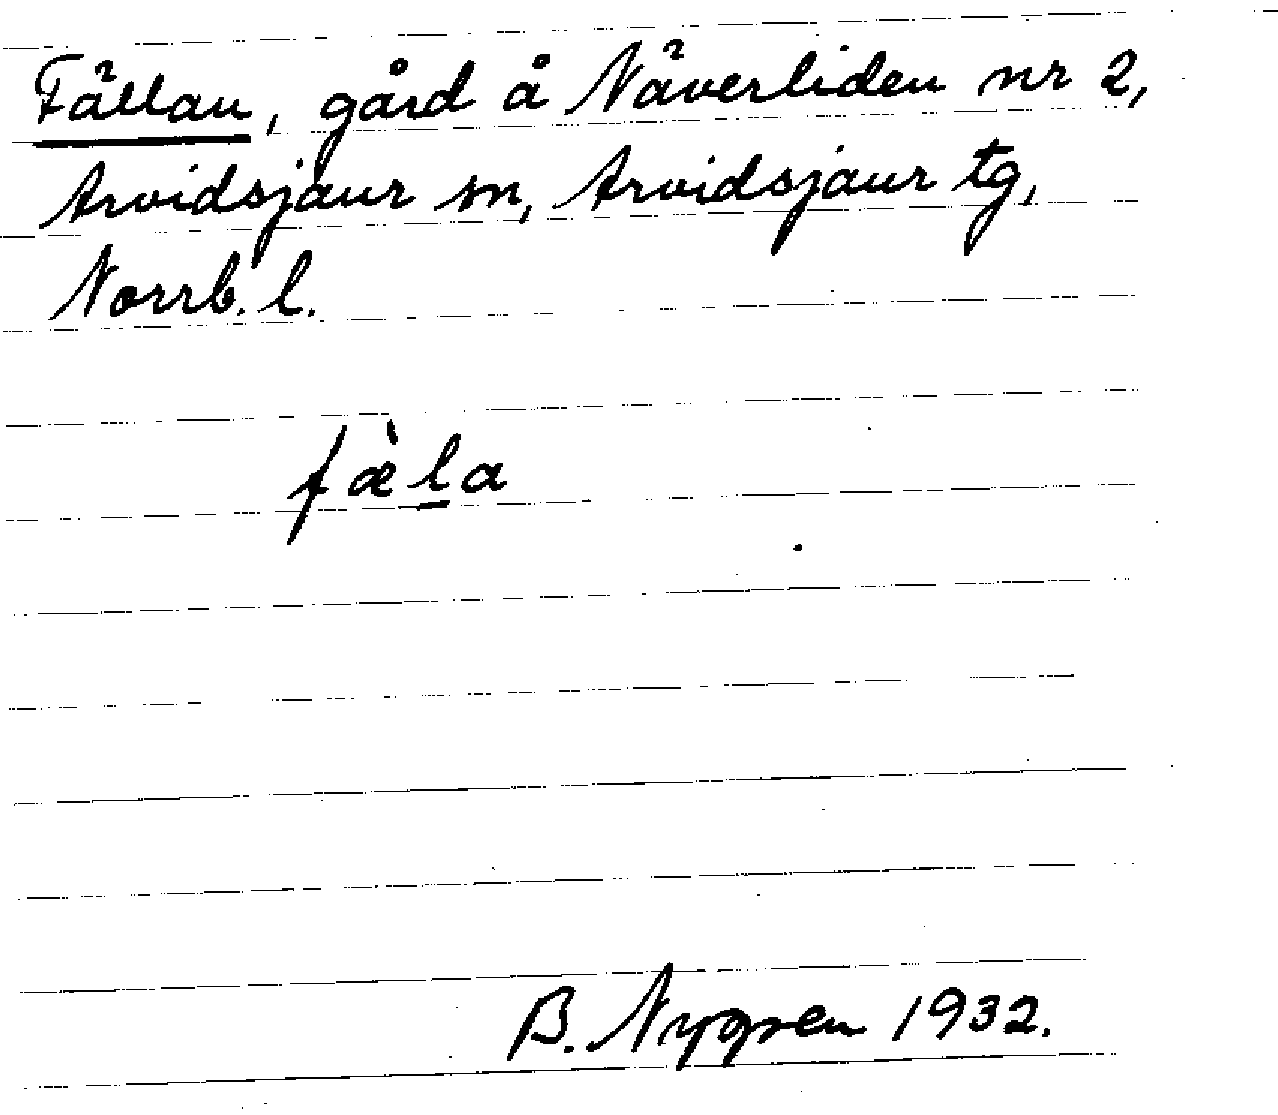 Fällan, gård å Näverliden nr 2,
Arvidsjaur sn, Arvidsjaur tg,
Norrb. l.
fæ̀l̲a
B. Nygren 1932.